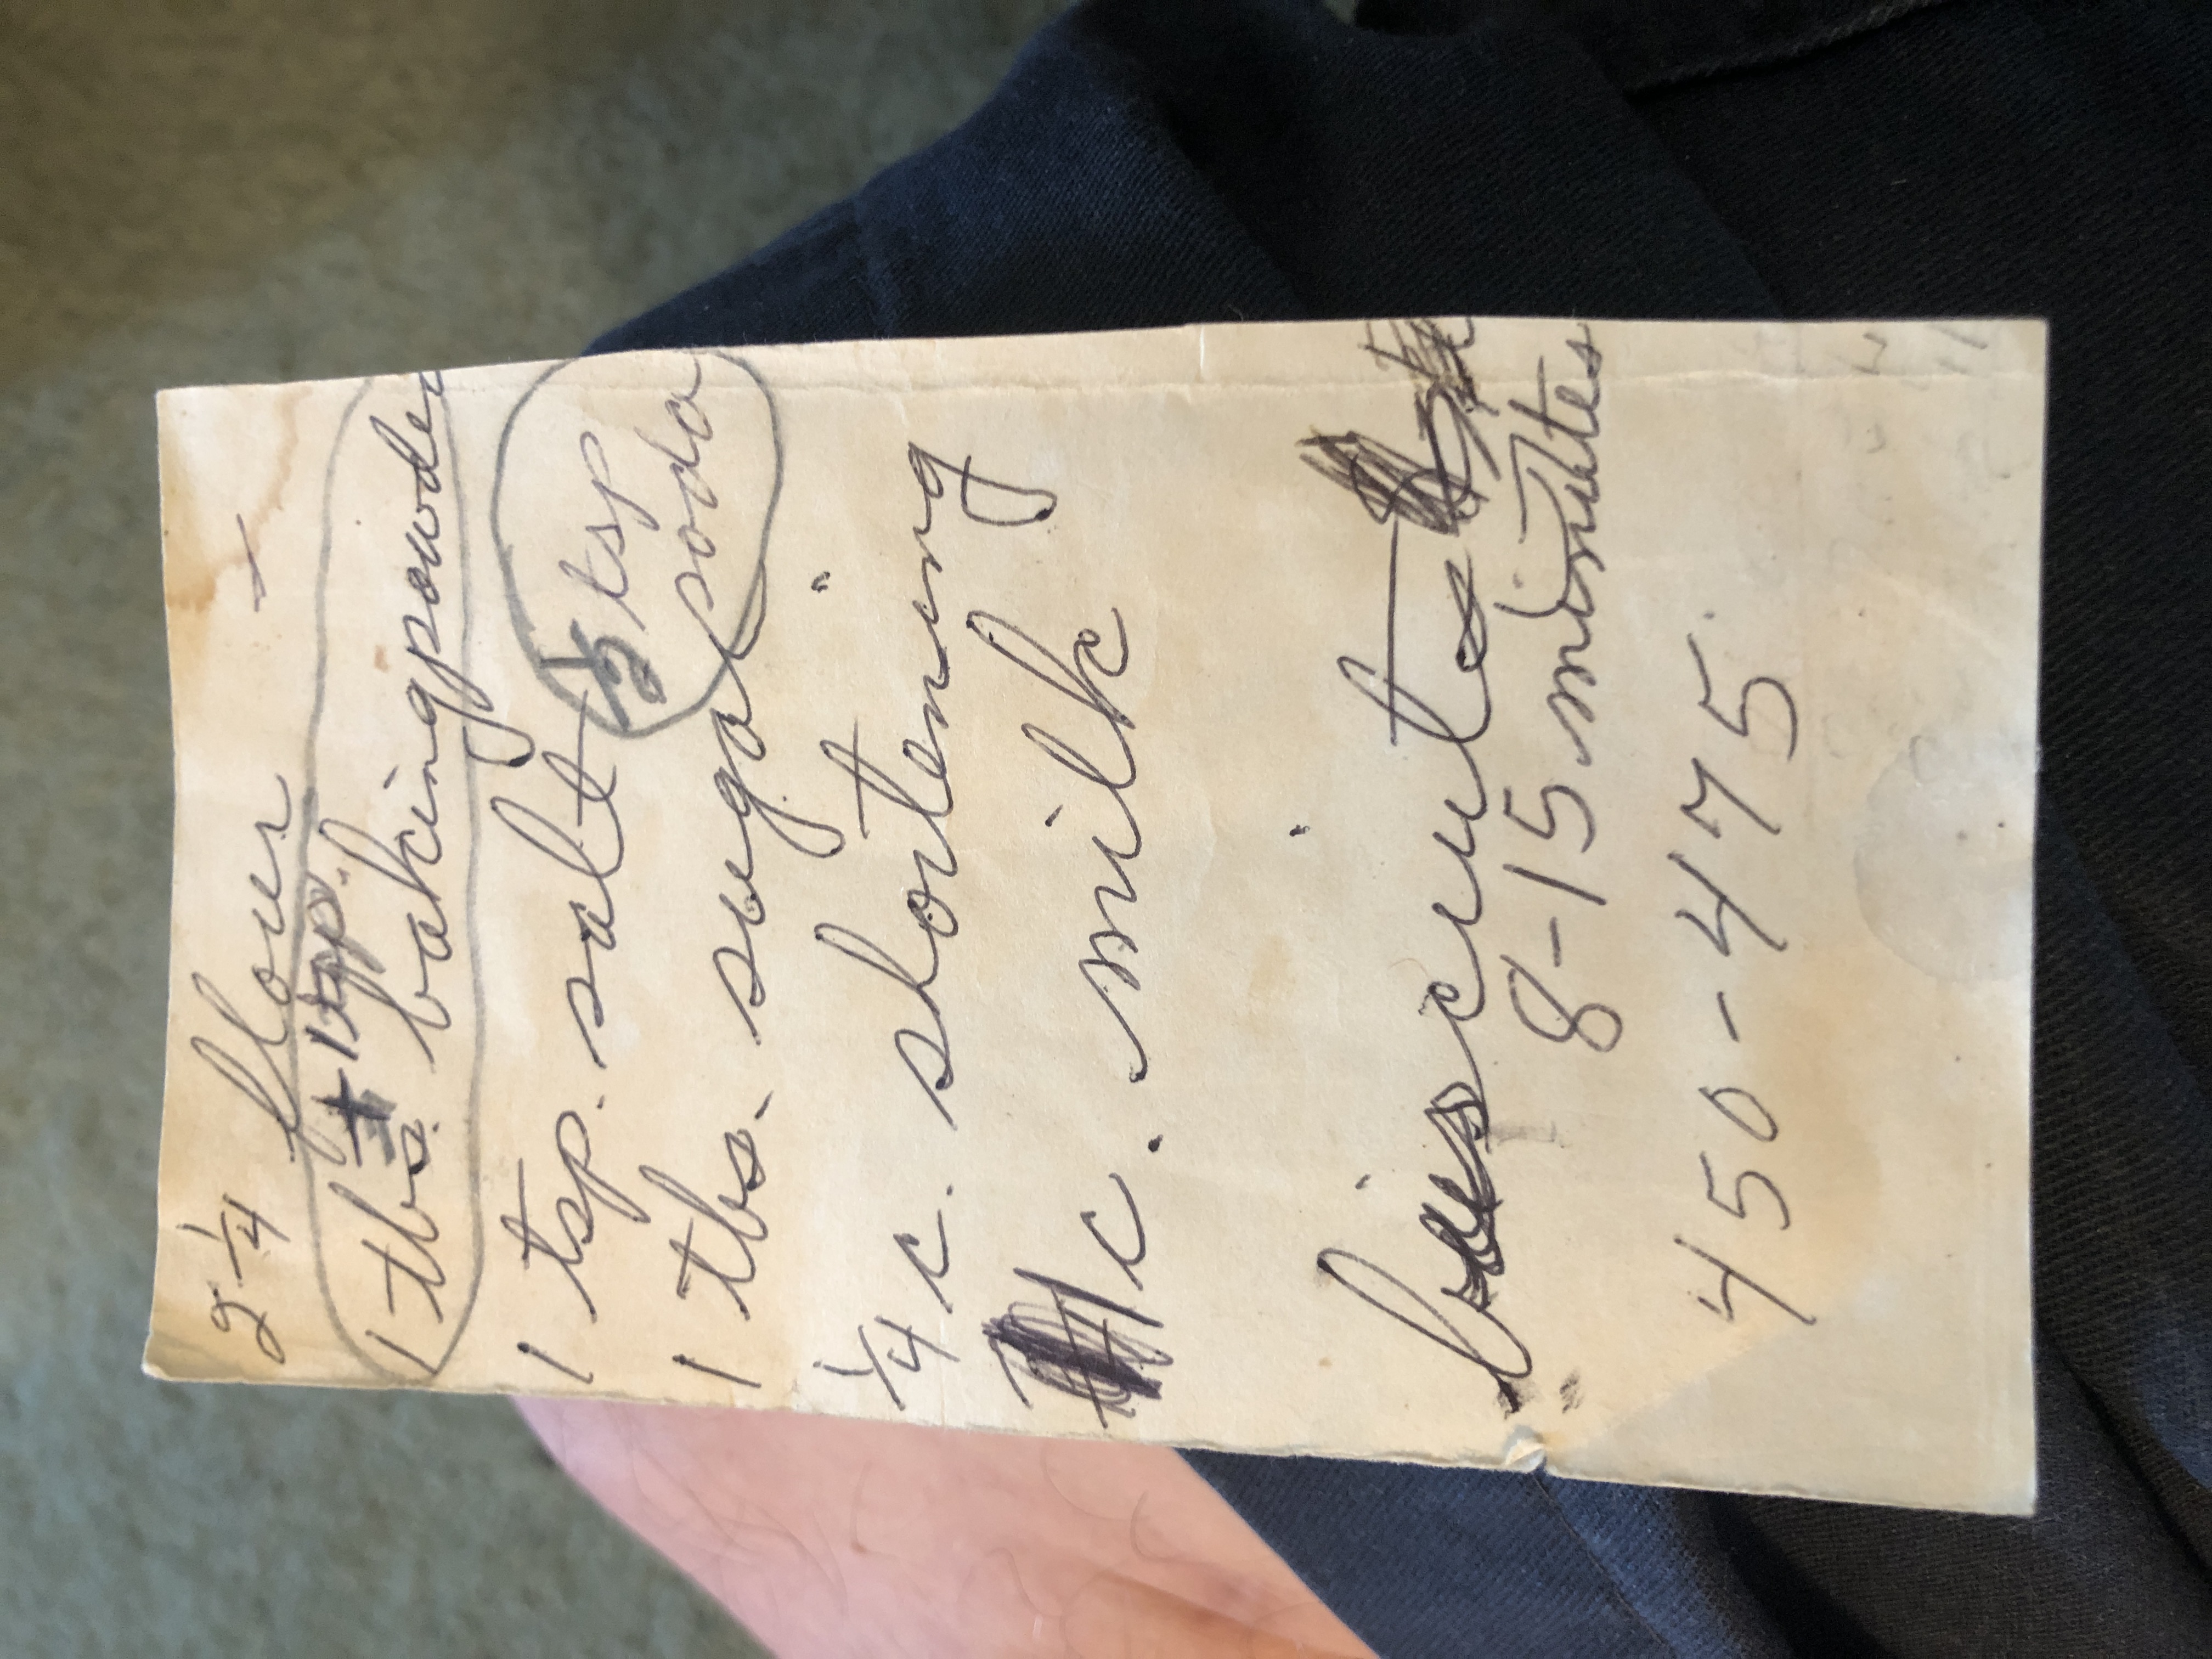 2 1/4 flour
+ 1 tsp.
1 tbs. baking powder
1 tsp. salt 1/2 tsp
1 tbs. sugar soda
1/4 c. shortening
c. milk
biscuits
8-15 minutes
450-475